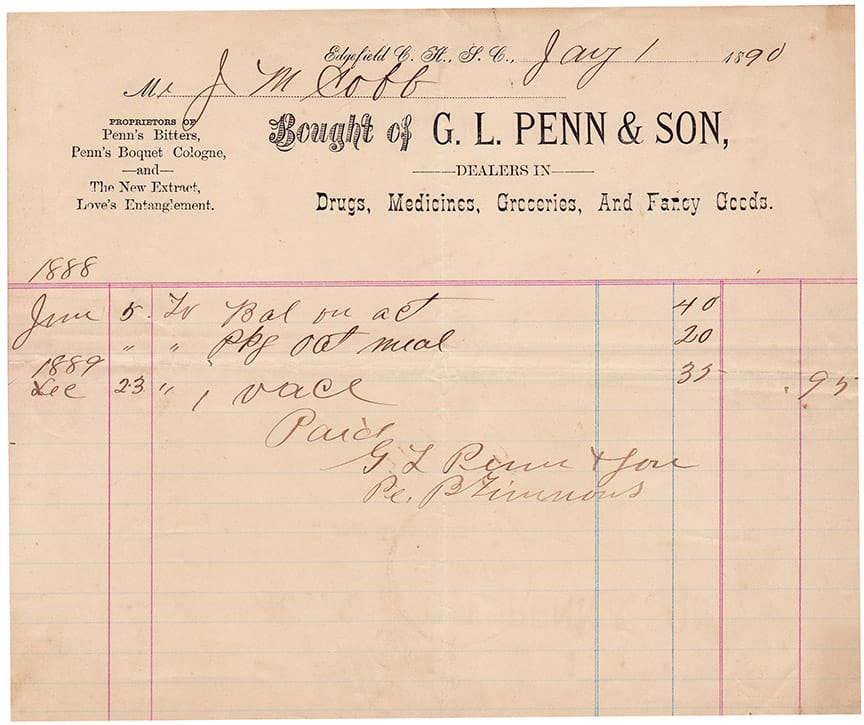 Edgefield C. H., S. C., Jany 1 1890
Mr J M Cobb
PROPRIETORS OF
Penn's Bitters,
Penn's Boquet Cologne,
—and—
The New Extract,
Love's Entanglement.
Bought of G. L. PENN & SON,
DEALERS IN
Drugs, Medicines, Groceries, And Fancy Goods.
1888
June 5 To Bal on act 40
" " Pkg Oat meal 20
1889
Dec 23 " 1 35 .95
Paid
G L Penn & Son
Per B Timmons